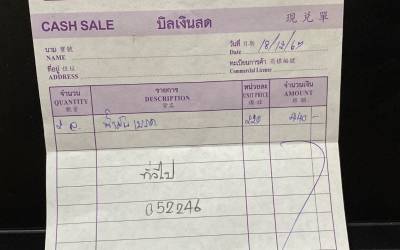 CASH SALE บิลเงินสด 現兌單
นาม 寶號
NAME
วันที่ 日期 18/12/67
Date
ที่อยู่ 住址
ADDRESS
ทะเบียนการค้า 商標編號
Commercial License
จำนวน รายการ หน่วยละ จำนวนเงิน
QUANTITY DESCRIPTION UNIT PRICE AMOUNT
數量 貨名 價錢 銀額
2 ล. น้ำมันเบรค 220 440 -
ทั่วไป
052246